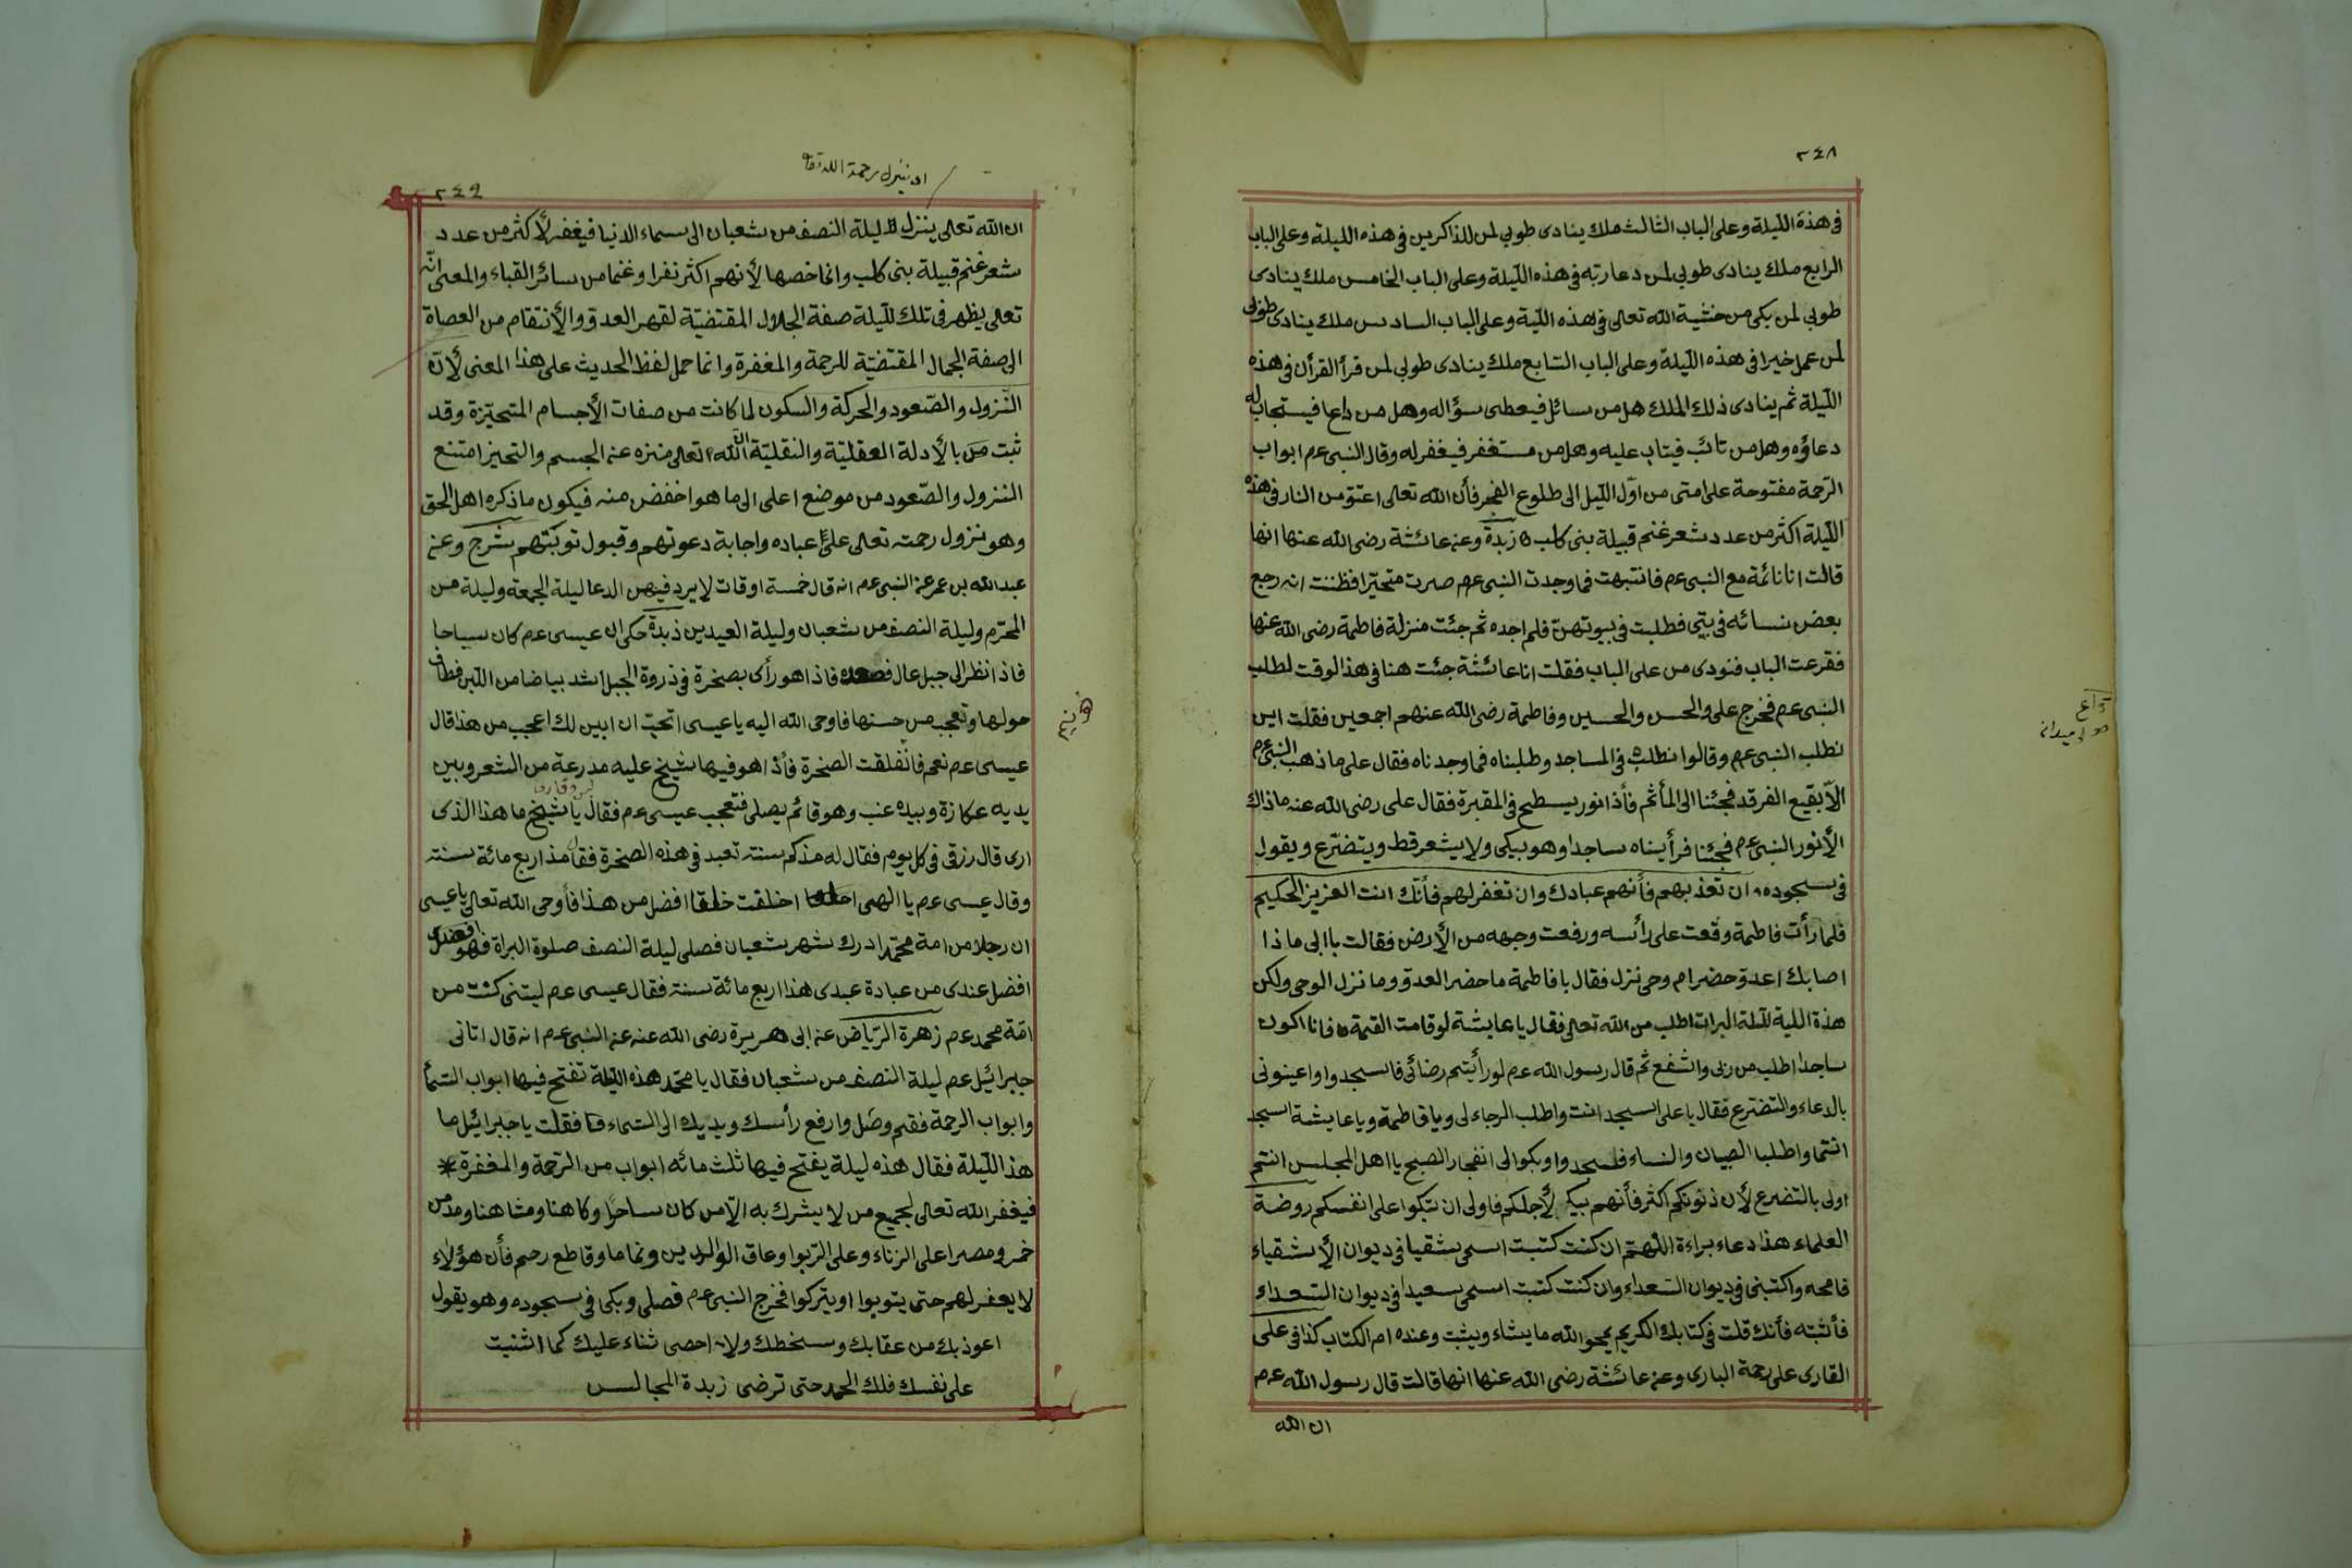 ٢٤٨
فى هذة الليلة وعلى الباب الثالث ملك ينادى طوبى لمن للذاكرين فى هذه الليلة وعلى الباب
الرابع ملك ينادى طوبى لمن دعا ربه فى هذه الليلة وعلى الباب الخامس ملك ينادى
طوبى لمن بكى من خشية الله تعالى فى هذه اللية وعلى الباب السادس ملك ينادى طوبى
لمن عمل خيرا فى هذه الليلة وعلى الباب السابع ملك ينادى طوبى لمن قرأ القرأن فى هذه
الليلة ثم ينادى ذلك الملك هل من سائل فيعطى سؤاله وهل من داعا فيستجاب له
دعاؤه وهل من تائب فيتاب عليه وهل من مستغفر فيغفر له وقال النبى عم ابواب
الرحمة مفتوحة على امتى من اول الليل الى طلوع الفجر فأن الله تعالى اعتق من النار فى هذه
الليلة اكثر من عدد شعر غنم قبيلة بنى كلب زبدة وعن عائشة رضى الله عنها انها
قالت انا نائمة مع النبى عم فانتبهت فما وجدت النبى عم صرت متحيرا فظننت انه رجع
بعض نسائه فى بيتى فطلبت فى بيوتهن فلم اجده ثم جئت منزلة فاطمة رضى الله عنها
فقرعت الباب فنودى من على الباب فقلت انا عائشة جئت هنا فى هذا الوقت لطلب
النبى عم فخرج على والحسن والحسين وفاطمة رضى الله عنهم اجمعين فقلت اين
نطلب النبى عم وقالوا نطلب فى المساجد وطلبناه فما وجدناه فقال على ما ذهب النبى عم
الا بقيع الفرقد فجئنا الى المأثم فأذا نور يسطح فى المقبرة فقال على رضى الله عنه ماذاك
الأنور النبى عم فجئنا فرأيناه ساجدا وهو يبكى ولا يشعر قط ويتضرع ويقول
فى سجوده ان تعذبهم فأنهم عبادك وان تغفر لهم فأنك انت العزيز الحكيم
فلما رأت فاطمة وقعت على رائسه ورفعت وجهه من الأرض فقالت يا ابى ماذا
اصابك اعدو حضر ام وحى نزل فقال يا فاطمة ما حضر العدو وما نزل الوحى ولكن
هذة اللية لليلة البرات اطلب من الله تعالى فقال يا عايشة لو قامت القيمة فانا اكون
ساجدا اطلب من ربى واشفع ثم قال رسول الله عم لو رأيتم رضائى فاسجدوا واعينونى
بالدعاء والتضرع فقال يا على اسجد انت واطلب الرجاء لى ويا فاطمة ويا عايشة اسجد
انتما واطلبا الصبيان والنساء فلسجدوا وبكوا لى انفجار الصبح يا اهل المجلس انتم
اولى بالتضرع لأن ذنوبكم اكثر فأنهم بيكى لأجلكم فاولى ان تبكوا على انفسكم روضة
العلماء هذا دعاء براءة اللهم ان كنت كتبت اسمى شقيا فى ديوان الأشقياء
فامحه واكتبنى فى ديوان السعداء وان كنت كتبت اسمى سعيدا فى ديوان السعداء
فأثبته فأنك قلت فى كتابك الكريم يمحو الله ما يشاء ويثبت وعنده ام الكتاب كذا فى على
القارى على رحمة البارى وعن عائشة رضى الله عنها انها قالت قال رسول الله عم
ان الله
٢٤٩
ان الله تعالى ينزل ليلة النصف من شعبان الى سماء الدنيا فيغفر لأكثر من عدد
شعر غنم قبيلة بنى كلب وانما خصها لأنهم اكثر نفرا وغنما من سائر القباء والمعنى انه
تعالى يظهر فى تلك لليلة صفة الجلال المقتضية لقهر العدو والأنتقام من العصاة
الى صفة الجمال المقتضية للرحمة والمغفرة وانما حمل لفظ الحديث على هذا المعنى لأن
النزول والصعود والحركة والسكون لما كانت من صفات الأجسام المتحيزة وقد
ثبت بالأدلة العقلية والنقلية ان الله تعالى منزه عن الجسم والتحيز امتنع
النزول والصعود من موضع اعلى الى ما هو اخفض منه فيكون ما ذكره اهل الحق
وهو نزول رحمته تعالى على عباده واجابة دعوتهم وقبول توبتهم شرح وعن
عبد الله بن عمر عن النبى عم انه قال خمسة اوقات لا يرد فيهن الدعا ليلة الجمعة وليلة من
المحرم وليلة النصف من شعبان وليلة العيدين زبدة حكى ان عيسى عم كان سياحا
فاذا نظر الى جبل عال فصعده فاذا هو رأى بصخرة فى ذروة الجبل اشد بياضا من اللبن فطاف
حولها وتعجب من حسنها فاوحى الله اليه يا عيسى اتحب ان ابين لك اعجب من هذا قال
عيسى عم نعم فانفلقت الصخرة فأذا هو فيها شيخ عليه مدرعة من الشعر وبين
يديه عكازة وبيده عنب وهو قائم يصلى فتعجب عيسى عم فقال يا شيخ ما هذا الذى
ارى قال رزقى فى كل يوم فقال له مذ كم سنة تعبد فى هذه الصخرة فقال مذ اربع مائة سنة
وقال عيسى عم يا الهى اخلقت خلقا افضل من هذا فأوحى الله تعالى يا عيسى
ان رجلا من امة محمد ادرك شهر شعبان فصلى ليلة النصف صلوة البراة فهو
افضل عندى من عبادة عبدى هذا اربع مائة سنة فقال عيسى عم ليتنى كنت من
امة محمد عم زهرة الرياض عن ابى هريرة رضى الله عنه عن النبى عم انه قال اتانى
جبرائيل عم ليلة النصف من شعبان فقال يا محمد هذه الليلة تفتح فيها ابواب السماء
وابواب الرحمة فقم وصل وارفع رأسك ويديك الى السماء فقلت يا جبرائيل ما
هذا الليلة فقال هذه ليلة يفتح فيها ثلث مائه ابواب من الرحمة والمغفرة
فيغفر الله تعالى لجميع من لا يشرك به الا من كان ساحرا وكاهنا ومشاهنا ومدمن
خمر ومصرا على الزناء وعلى الربوا وعاق الوالدين ونماما وقاطع رحم فأن هؤلاء
لا يغفر لهم حتى يتوبوا او يتركوا فخرج النبى عم فصلى وبكى فى سجوده وهو يقول
اعوذ بك من عقابك وسخطك ولا احصى ثناء عليك كما اثنيت
على نفسك فلك الحمد حتى ترضى زبدة المجالس